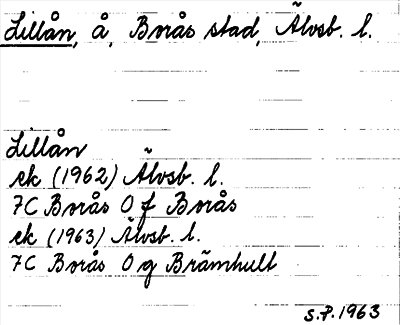 Lillån, å, Borås stad, Älvsb. l.
Lillån
ek (1962) Älvsb. l.
7C Borås O f Borås
ek (1963) Älvsb. l.
7C Borås O g Brämhult
S.P. 1963